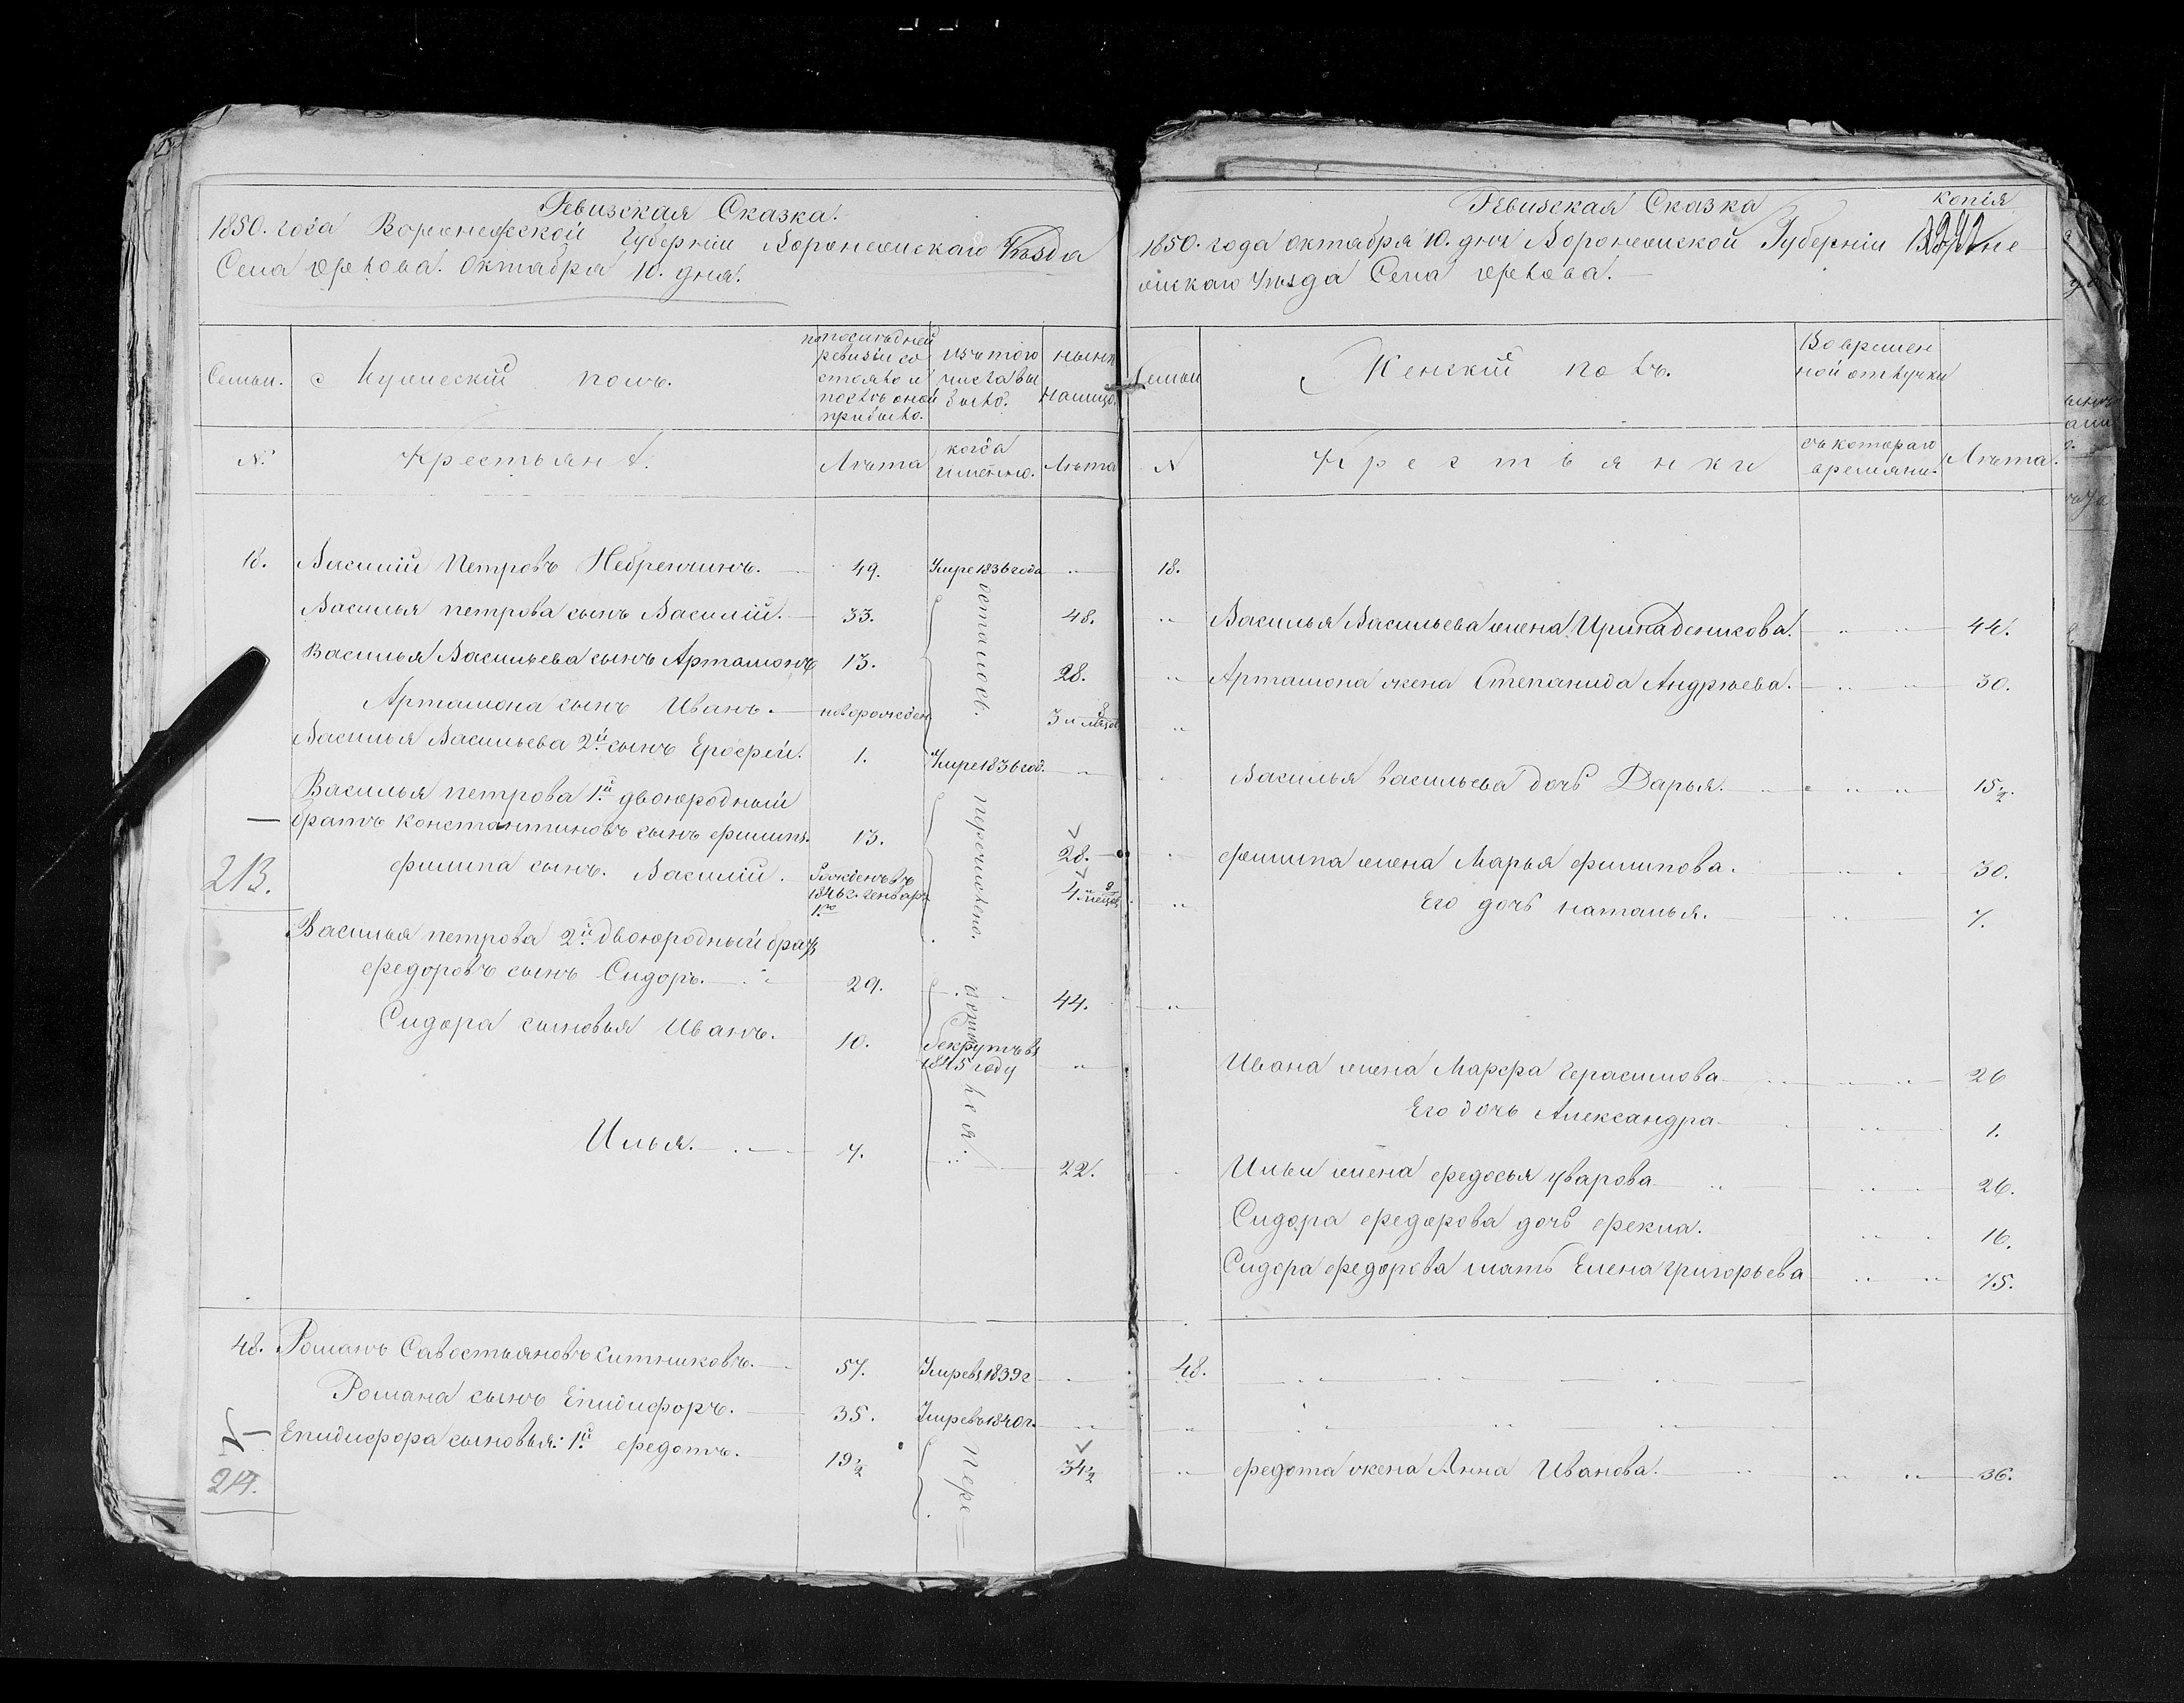 Ревизская Сказка.
1850. года Воронежской Губернiи Воронежскаго Уѣзда
Села Орлова. Октября 10. дня.
Семьи.
Мужескiй полъ.
по послѣдней
ревизiи со
стояло и
послѣ оной
прибыло.
изъ того
числа вы
было.
нынѣ
налицо.
№
Крестьянѣ.
Лѣта
когда
именно.
Лѣта
18. Василiй Петровъ Небренчинъ. 49. Умре 1836 года
Василья петрова сынъ Василiй. 33. 48.
Василья Васильева сынъ Артамонъ 13. 28.
Артамона сынъ Иванъ. новорожден 3 и 8 мѣсяцов
осталось.
Василья Васильева 2й сынъ Ерофей. 1. Умре 1836 год.
Василья петрова 1й двоюродный
братъ константиновъ сынъ филипъ. 13. 28.
213.
филипа сынъ. Василiй. Рожденъ въ
1846 г. генваря
1го
4 и 9 мѣсяцов
перечислено.
Василья петрова 2й двоюродный братъ
федоровъ сынъ Сидоръ. 29. 44.
Сидора сыновья Иванъ. 10. Рекрутъ въ
1845 году
Илья. 7. 22.
48. Романъ Савостьяновъ Ситниковъ. 57. Умре въ 1839 г
Романа сынъ Епидифоръ. 35. Умре въ 1840 г.
Епидифора сыновья: 1й федотъ. 19½ 34½
Пере=
214.
Ревизская Сказка
копiя
1850. года октября 10. дня Воронежской Губернiи Вороне
жскаго Уѣзда Села Орлова.
Семьи
Женскiй полъ.
Во времен
ной отлучки
N
Крестьянки
съ котораго
времяни.
Лѣта.
18.
Василья Васильева жена Ирина денисова. 44.
Артамона жена Степанида Андрѣева. 30.
Василья васильева дочь Дарья. 15½.
филипа жена Марья филипова. 30.
Его дочь наталья. 7.
Ивана жена Марфа герасимова 26
Его дочь Александра 1.
Ильи жена федосья уварова 26.
Сидора федорова дочь фекла. 16.
Сидора федорова мать Елена григорьева 75.
48.
федота жена Анна Иванова. 36.